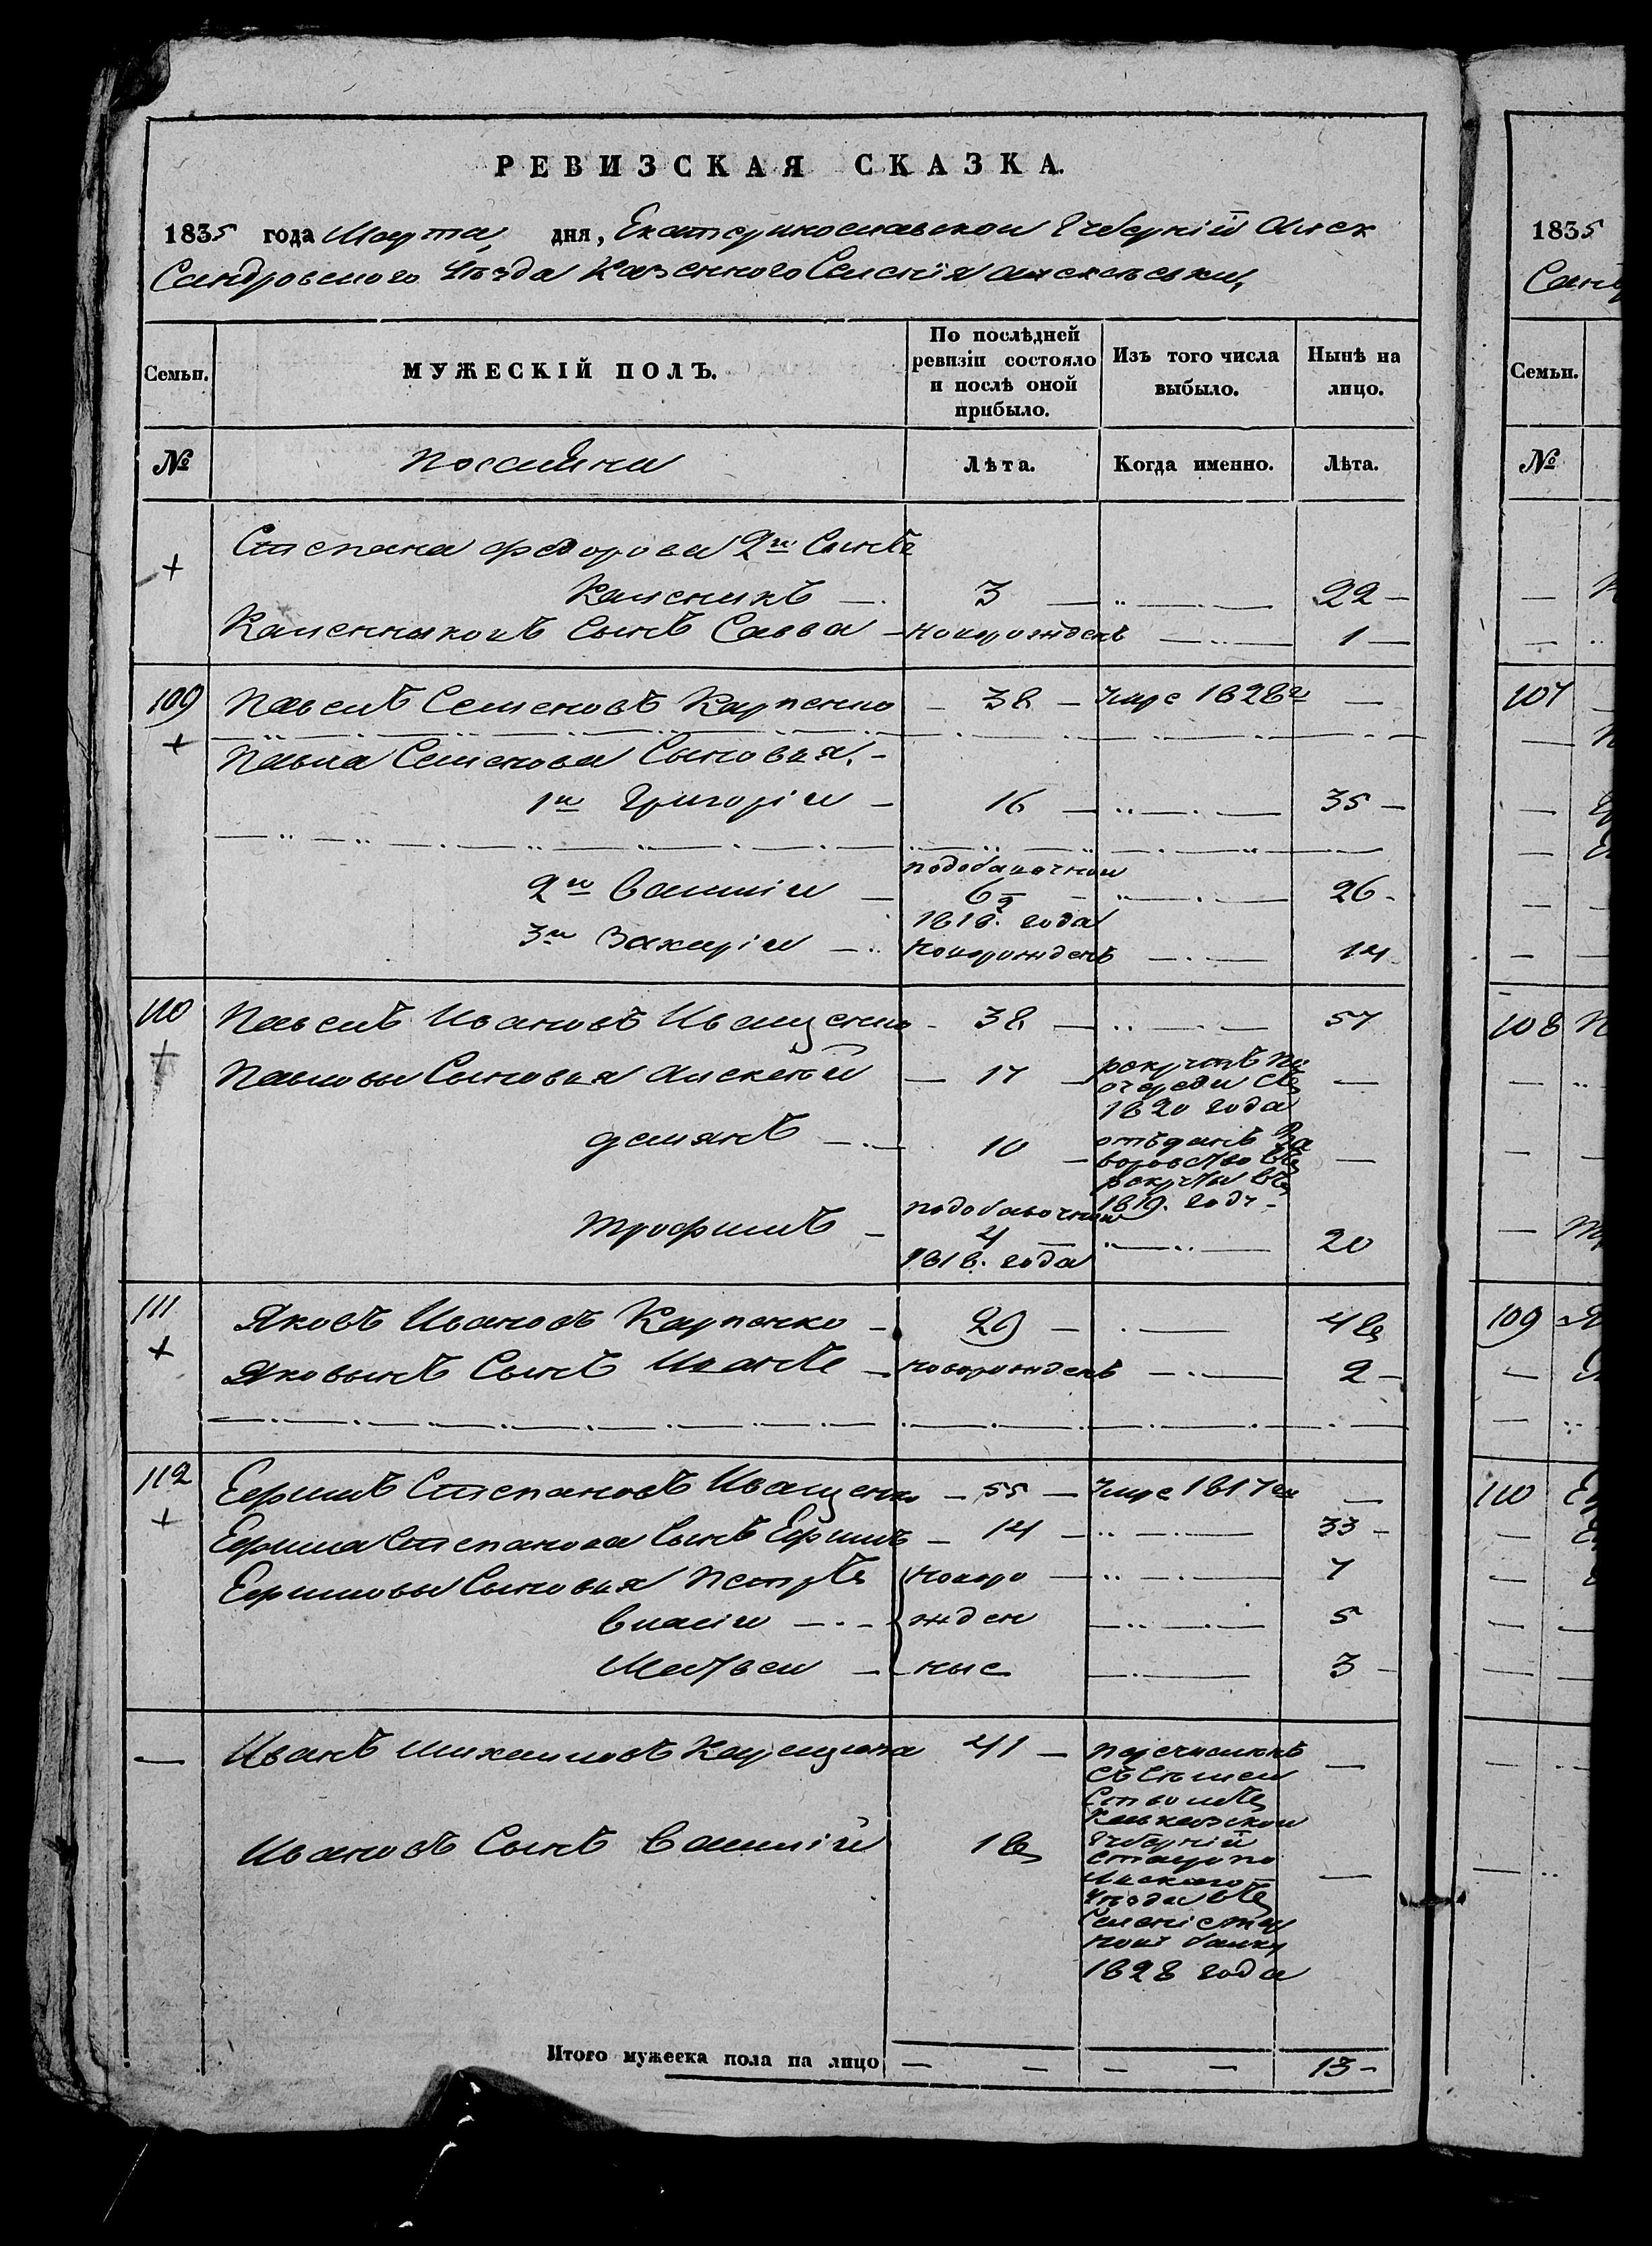 РЕВИЗСКАЯ СКАЗКА.
1835 года Марта, дня, Екатеринославской Губерніи Алек
сандровского Уезда Казенного Селенія Алексеевки,
Семьи.
МУЖЕСКІЙ ПОЛЪ.
По послѣдней ревизіи состояло и послѣ оной прибыло.
Изъ того числа выбыло.
Нынѣ на лицо.
№
Лѣта.
Когда именно.
Лѣта.
+ Степана Федорова 2й Сынъ
3 22
сынъ Савва новорожденъ 1
109 Павелъ Семеновъ Карпенко 38 умре 1828г
+ Павла Семенова Сыновья.
1й Григорій 16 35
подобавочной
2й Василій 6½ 26
1818. года
3й Захарій новорожденъ 14
110 Павелъ Ивановъ Иващенко 38 57
+ Павловы Сыновья Алексей 17 рекрутъ по
очереди съ
1820 года
Демянъ 10 отъданъ за
воровство въ
рекруты въ
1819. году
подобавочной
Трофимъ 4 20
1818. года
111 Яковъ Ивановъ Карпенко 29 48
+ Яковынъ Сынъ Иванъ новорожденъ 2
112 Ефимъ Степановъ Иващенко 55 умре 1817го
+ Ефима Степанова Сынъ Ефимъ 14 33
Ефимовы Сыновья Петръ новоро 7
Власій жден 5
Матвей ные 3
Иванъ Михаиловъ 41 перечисленъ
съ
Кавказской
Губерніи
ставропо
льского
Уезда въ
балку
1828 года
Ивановъ Сынъ Василій 18
Итого мужеска пола на лицо 13
1835
Семьи.
№
107
108
109
110